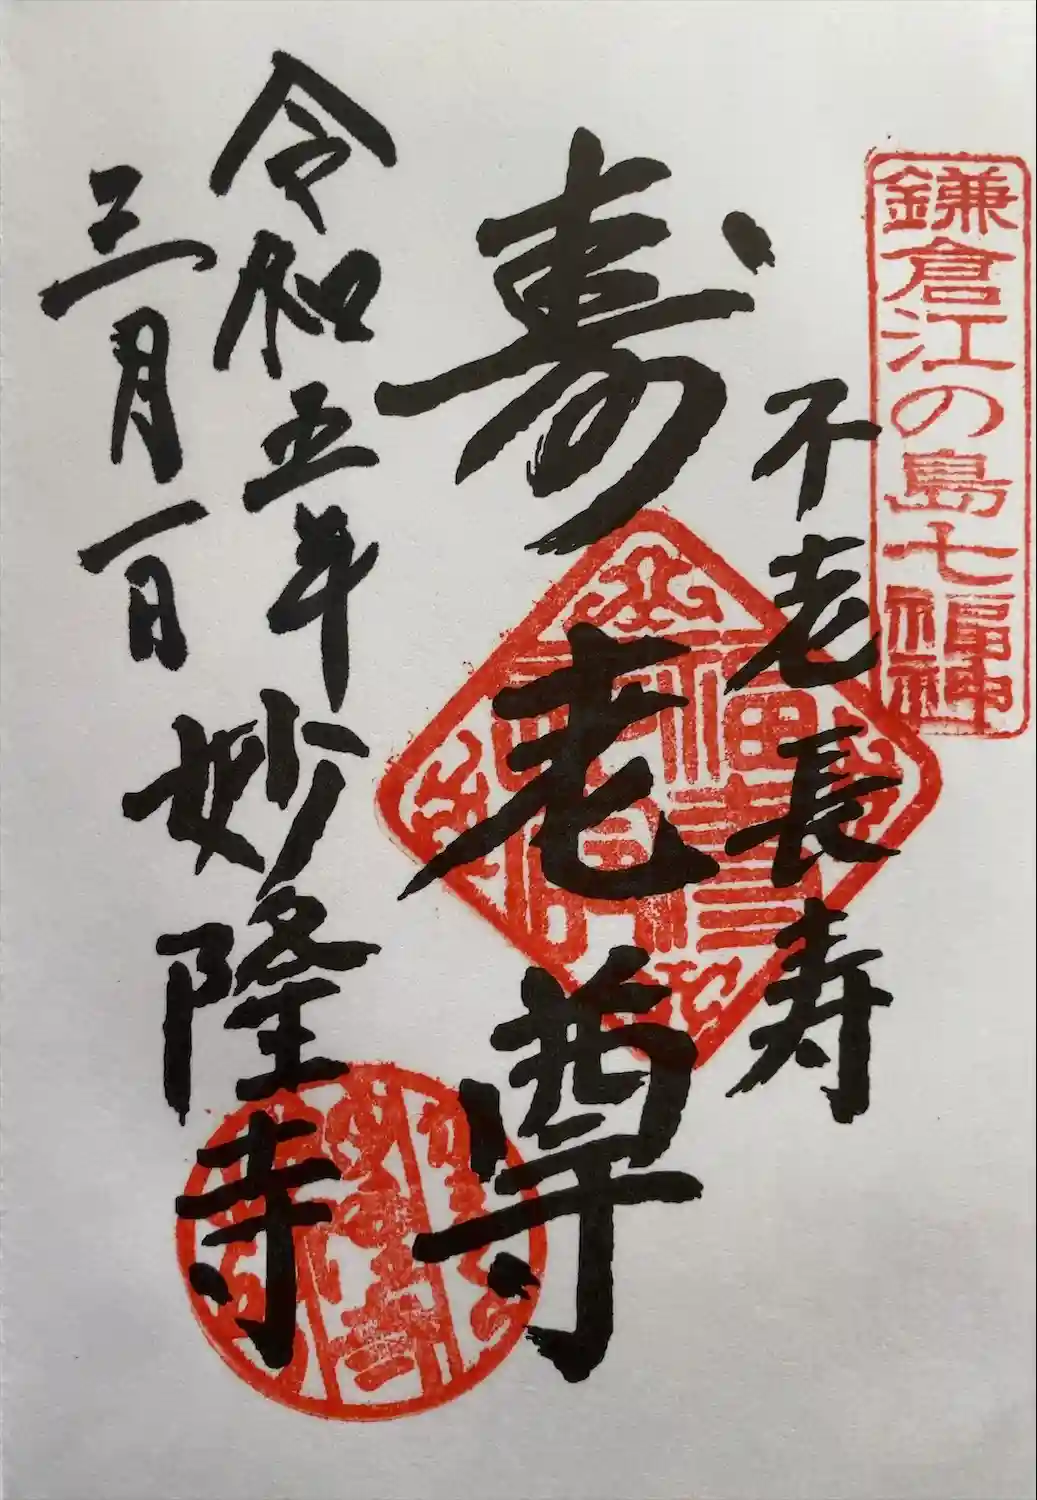 鎌倉江の島七福神
不老長寿
寿老尊
令和五年
三月一日
妙隆寺